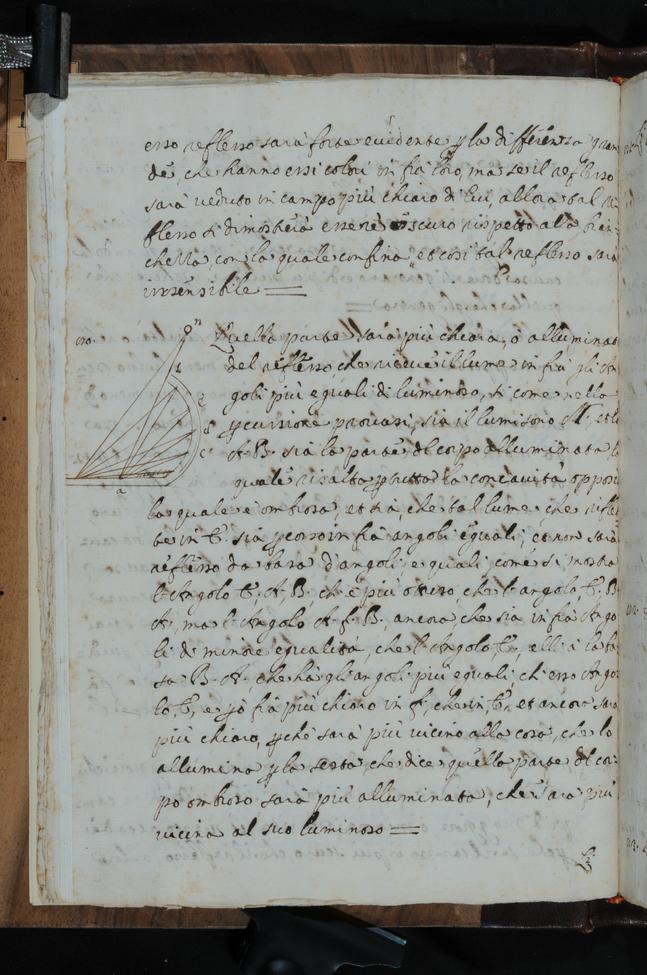 esso reflesso sarà forte evidente p la differenza gran
de, che hanno essi colori in frà loro, ma se il reflesso
sarà veduto in campo più chiaro di lui, allora tal re
flesso si dimostrerà essere oscuro rispetto alla bian
chezza con la quale confina et così tal reflesso sarà
insensibile
Quella parte sarà più chiara, ò alluminat
del reflesso, che riceve il lume in frà gli An
goli più eguali di luminoso, si come nella
sia il luminoso N. et l
A. B. sia la parte del corpo alluminata l
quale risalta p tutta la concavità opposi
la quale è ombrosa, et sia, che tal lume che reflet
te in E. sia percosso in frà angoli eguali, et non sarà
reflesso da basa d'angoli eguali, come si mostra
l'Angolo E. A, B, ch'è più otuso, che l'angolo E. B.
A, ma l'Angolo A. f. B, ancora che sia in frà Ango
li di minore equalità, che l'Angolo E, elli à la ba
sa B. A, che hà gli angoli più eguali ch'esso Ango
lo, E, e pò fia più chiaro in f, che in E, et ancora sarà
più chiaro, pche sarà più vicino alla cosa, che lo
allumina p la sesta, che dice quella parte del cor
po ombroso sarà più alluminata, che sarà più
vicina al suo luminoso